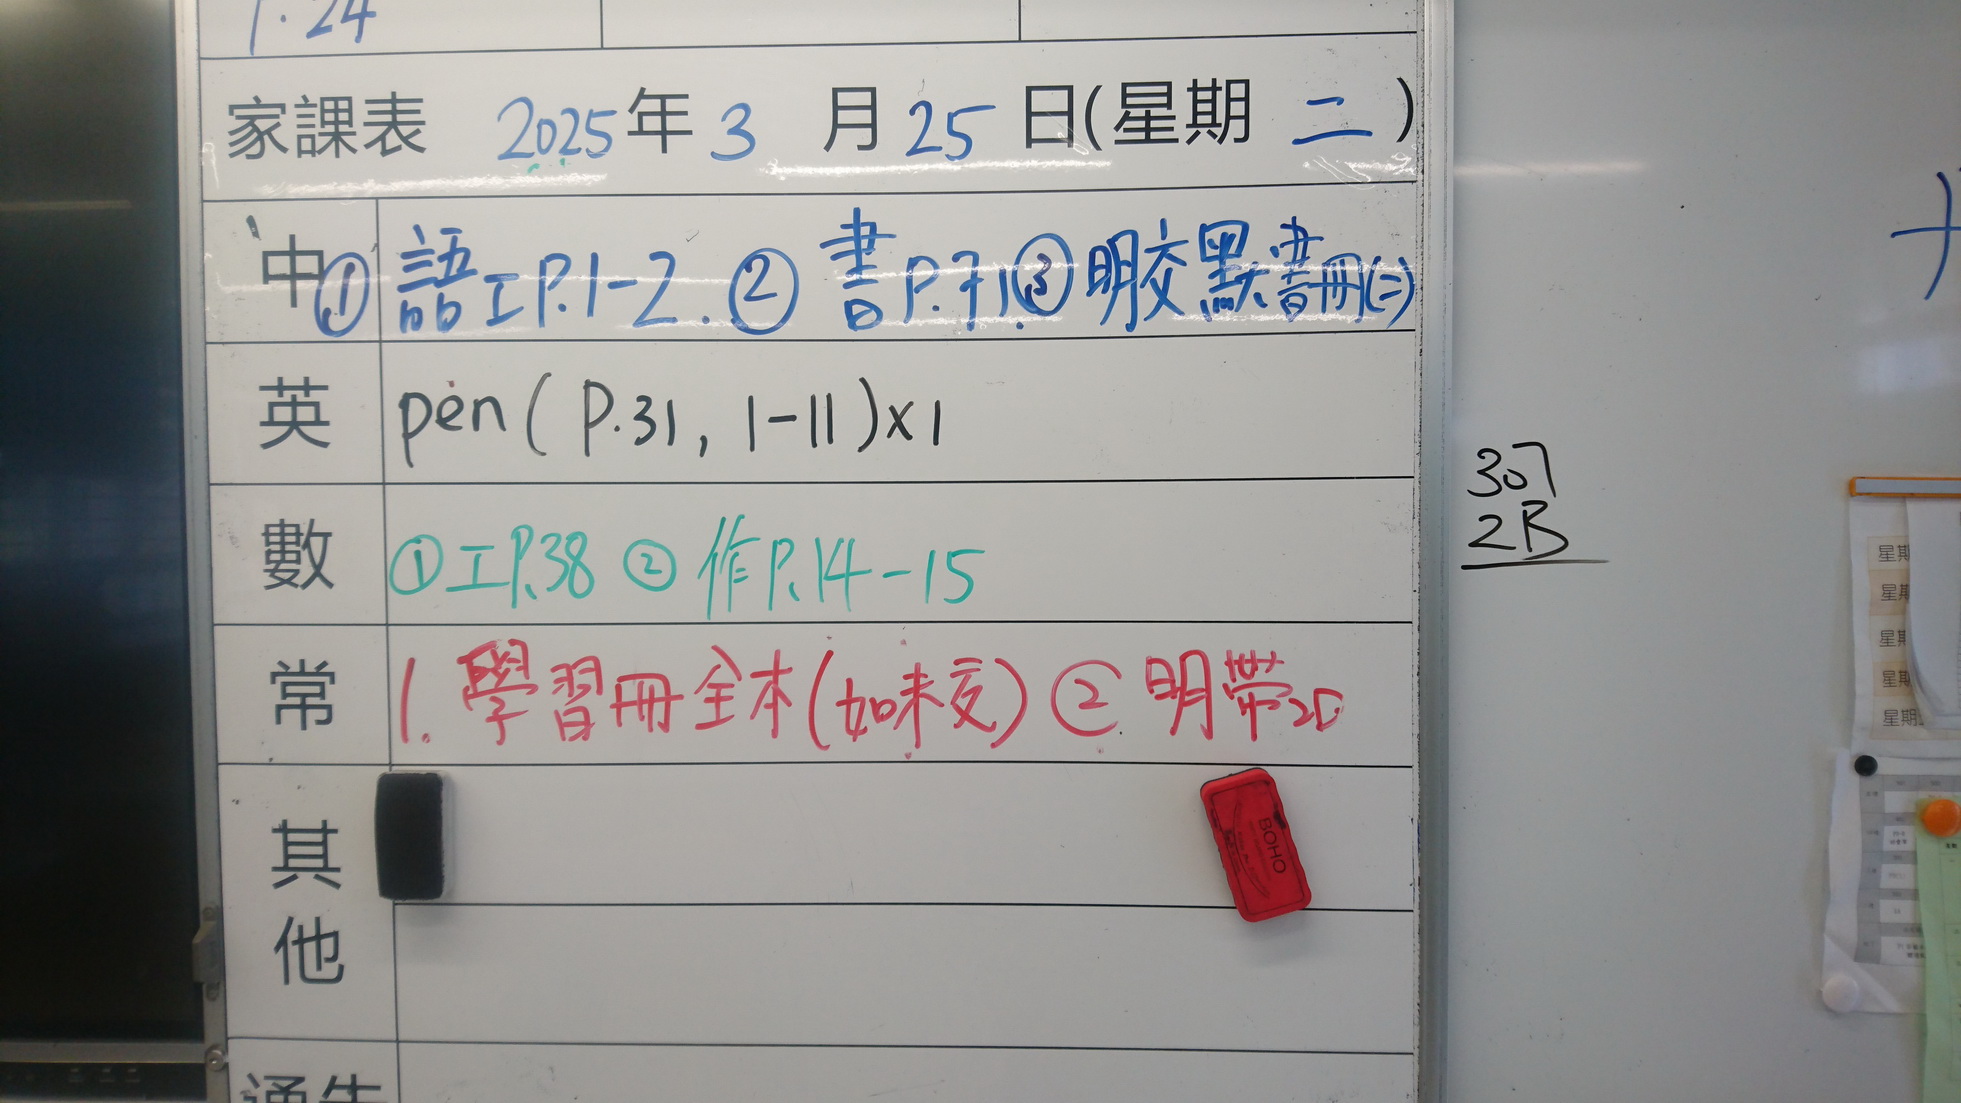 P.24
家課表 2025年 3 月 25 日(星期 二 )
中 ① 語工P.1-2. ② 書P.71. ③ 明交默書冊(二)
英 pen( P.31, 1-11)x1
數 ①工P.38 ② 作P.14-15
常 1. 學習冊全本(如未交) ② 明帶2D
其他
通告
307
2B
BOHO
星期
星期
星期
星期
星期